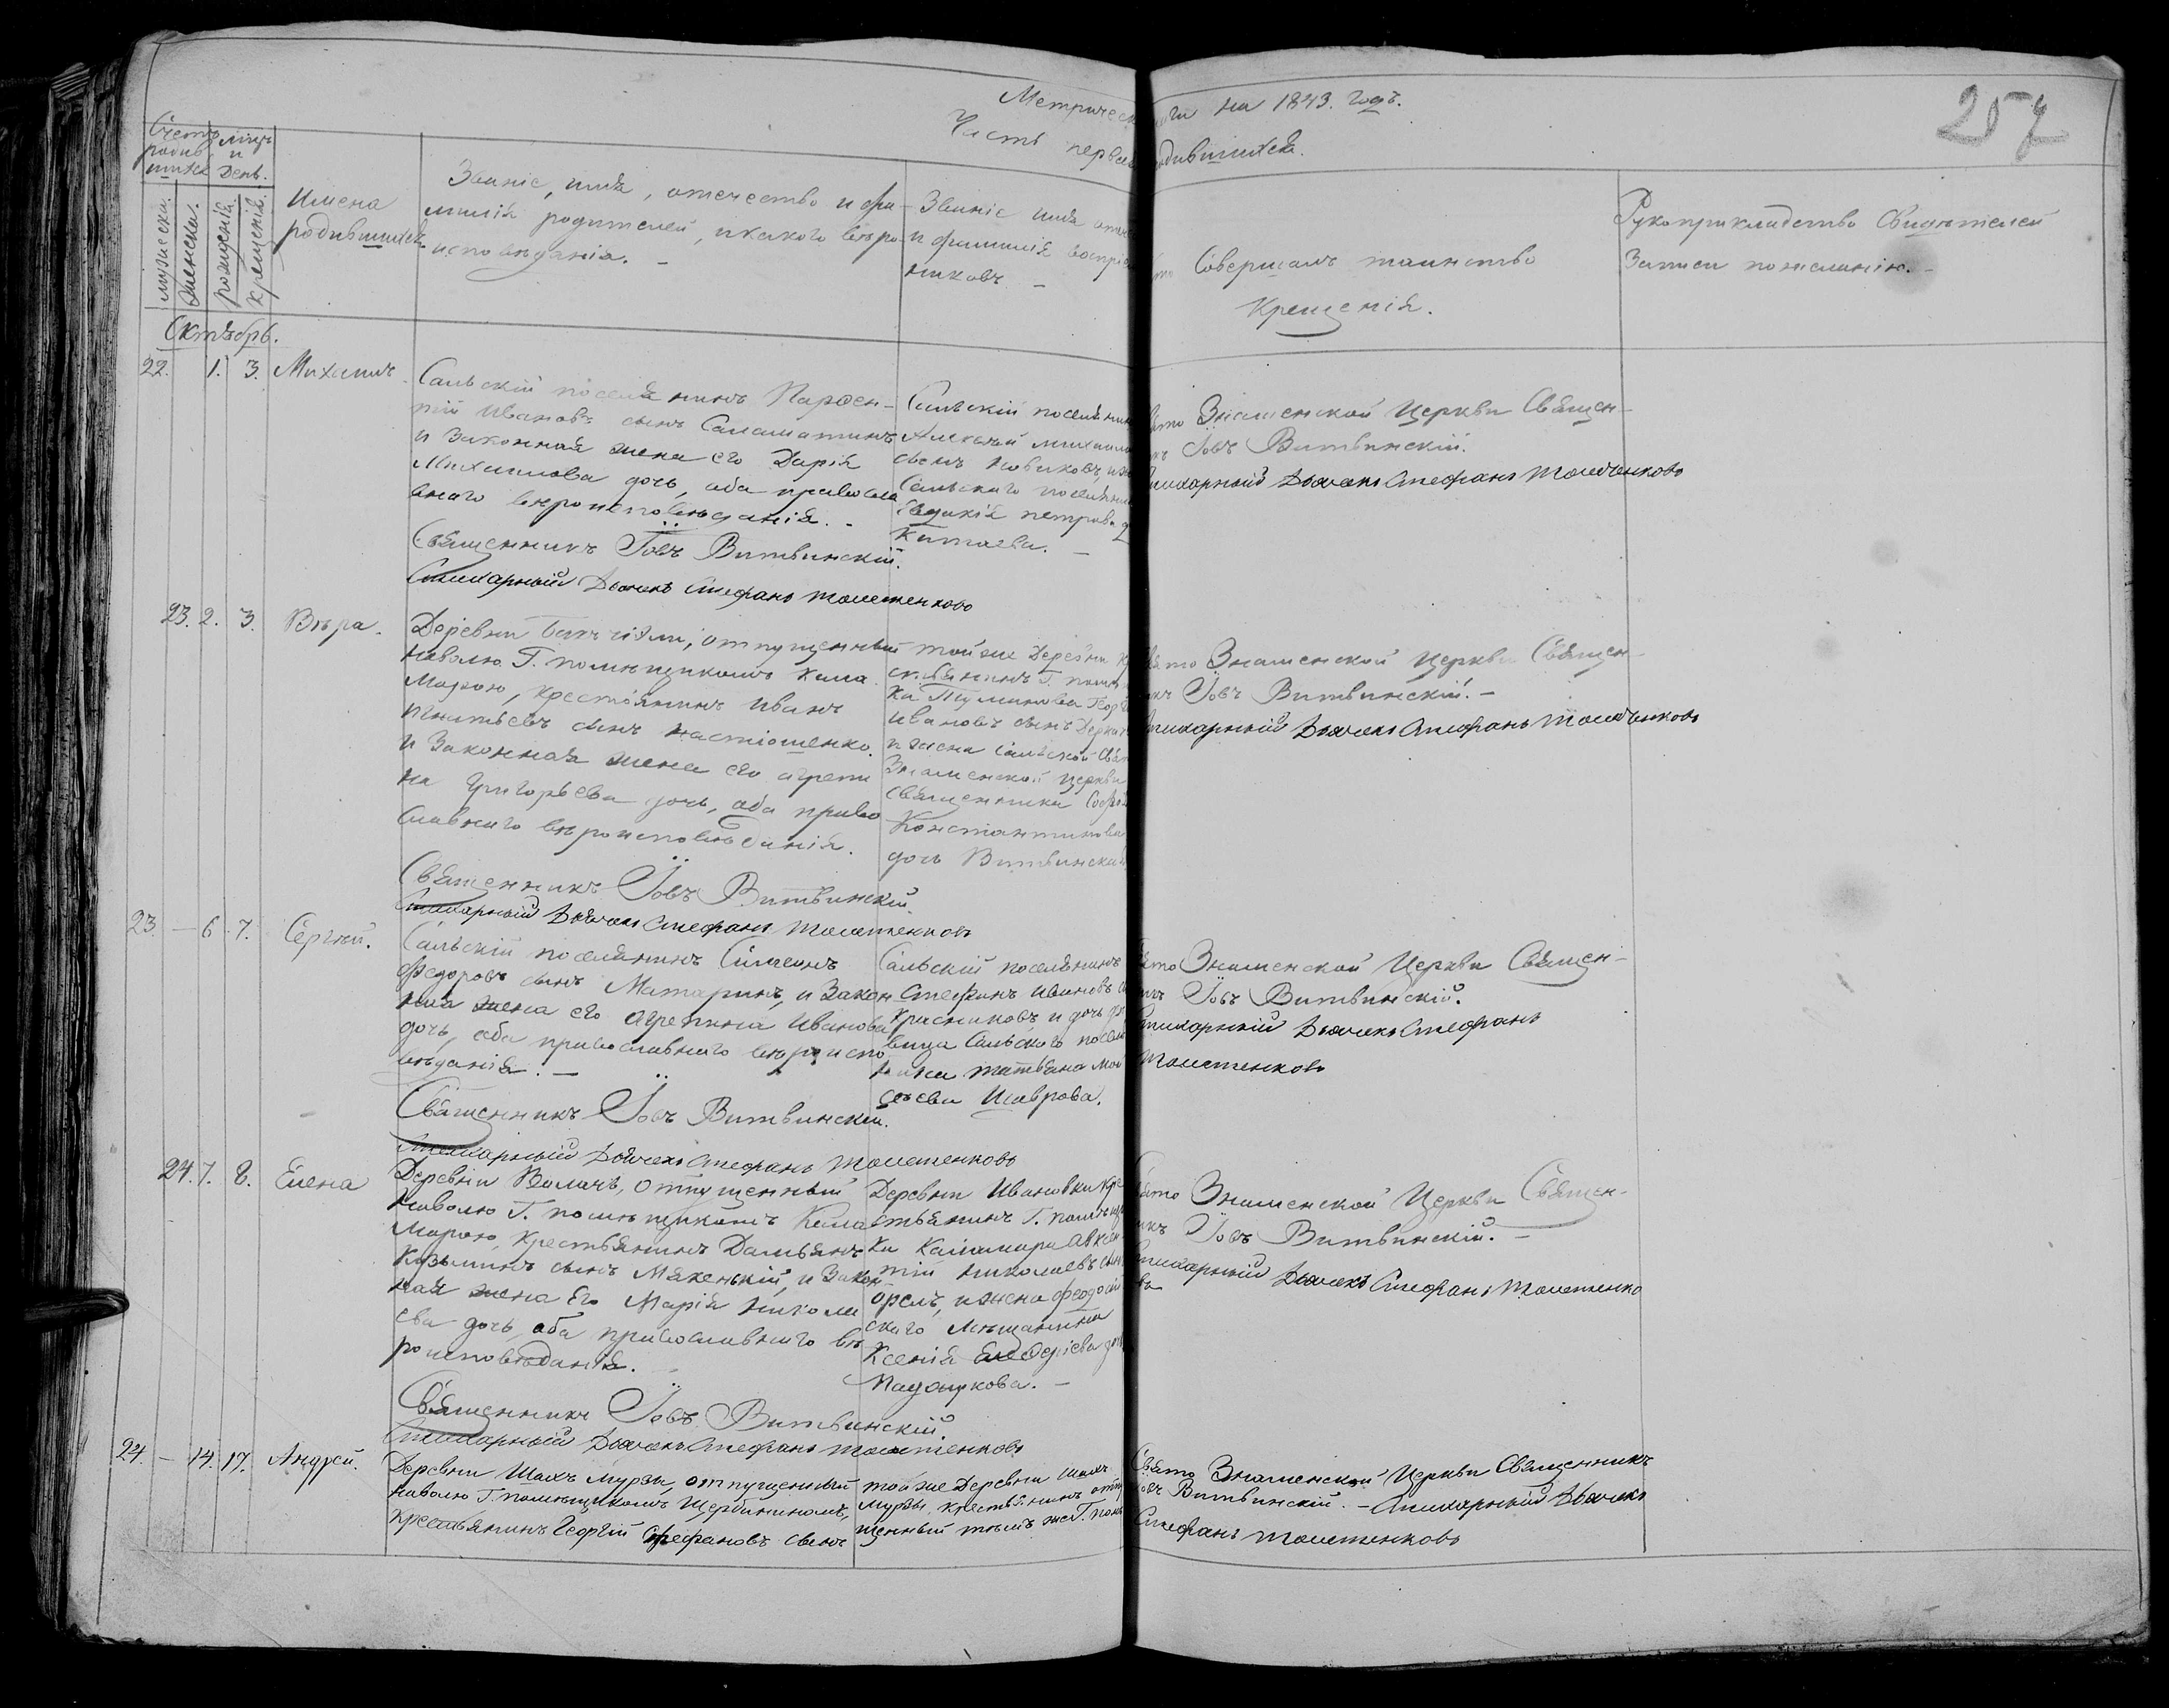 Метричес ги на 1843. Годъ.
Часть перва одившихся.
257
Счетъ родив шихся
Мѣсъ и День.
мужеска.
женска.
рожденія.
крещенія.
Имена
родившихся
Званіе, имя, отечество и фа-
милія родителей, и какого вѣро-
исповѣданія. -
Званіе имя отеч
и фамилія воспріе
никовъ -
Совершалъ таинство
Крещенія.
Рукоприкладство Свидѣтелей
Записи по желанію. -
Октябрь.
22. 1. 3. Михаилъ
Сальскій поселянинъ Парѳен-
тій Ивановъ сынъ Саламатинъ
и Законная жена его Дарія
Михаилова дочь, оба правосла
внаго вѣроисповѣданія. -
Священникъ Іовъ Витвинскій.
Стихарный Дьячекъ Стефанъ
Сальскій поселянин
Алексѣй Михаило
сынъ Новиковъ, и
Сальскаго поселян
Евдокія Петрова д
Китаева. -
ято Знаменской Церкви Священ-
къ Іовъ Витвинскій.
тихарный Дьячекъ Стефанъ
23. 2. 3. Вѣра.
Деревни отпущенный
наволю Г. помѣщикомъ Кала
Марою, крестьянинъ Иванъ
Игнатьевъ сынъ Настюшенко
и Законная жена его Агрепи
на Григорьева дочь, оба право
славнаго вѣроисповѣданія.
Священникъ Іовъ Витвинскій
Стихарный Дьячекъ Стефанъ
той же Деревни кр
стьянинъ Г. помѣщ
ка Геор
Ивановъ сынъ
и жена Сальской Свят
Знаменской Церкви
Священника Софія
Константинова
дочь Витвинская
ято Знаменской Церкви Священ-
икъ Іовъ Витвинскій. -
тихарный Дьячекъ Стефанъ
23. - 6. 7. Сергѣй.
Сальскій поселянинъ Симеонъ
Федоровъ сынъ Матаринъ, и Закон
ная жена его Агрепина Иванова
дочь, оба православнаго вѣроиспо
вѣданія. -
Священникъ Іовъ Витвинскій.
Стихарный Дьячекъ Стефанъ
Сальскій поселянинъ
Стефанъ Ивановъ с
Красниковъ и дочь дѣ
вица Сальскаго посел
нина Татьяна Мои
сѣева Шаврова.
ято Знаменской Церкви Священ-
икъ Іовъ Витвинскій.
тихарный Дьячекъ Стефанъ
24. 7. 8. Елена
Деревни отпущенный
наволю Г. помѣщикомъ Кала
Марою, Крестьянинъ Дамьянъ
Козьминъ сынъ Мякенькій, и Закон
ная жена Его Марія Никола
ева дочь, оба православнаго вѣ
роисповѣданія.
Священникъ Іовъ Витвинскій.
Стихарный Дьячекъ Стефанъ
Деревни Ивановки кре
стьянинъ Г. помѣщи
ка Каламара Авксен
тій Николаевъ сын
Орелъ, и жена Феодосій
скаго Мѣщанина
Ксенія дочь
ято Знаменской Церкви Священ-
икъ Іовъ Витвинскій. -
тихарный Дьячекъ Стефанъ
въ
24. - 14. 17. Андрей.
Деревни Шахъ Мурзы, отпущенный
наволю Г. помѣщикомъ Щербининомъ,
крестьянинъ Георгій Стефановъ сынъ
той же Деревни Шахъ
Мурзы, крестьянинъ отпу
щенный тѣмъ же Г. помѣ
Свято Знаменской Церкви Священникъ
Іовъ Витвинскій. - Стихарный Дьячекъ
Стефанъ